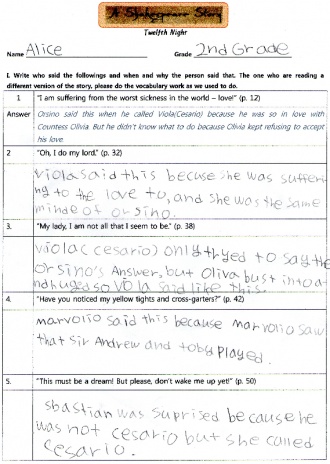 A Shakespeare Story
Twelfth Night
Name Alice Grade 2nd Grade
I. Write who said the followings and when and why the person said that. The one who are reading a
different version of the story, please do the vocabulary work as we used to do.
1 "I am suffering from the worst sickness in the world – love!" (p. 12)
Answer Orsino said this when he called Viola(Cesario) because he was so in love with
Countess Olivia. But he didn't know what to do because Olivia kept refusing to accept
his love.
2 "Oh, I do my lord." (p. 32)
viola said this becuse she was sufferi
ng to the love to, and she was the same
minde of orsino.
3. "My lady, I am not all that I seem to be." (p. 38)
viola( cesario) only thryed to say the
orsino's Answer, but Oliva bust into a
nd huged so viola said like this.
4. "Have you noticed my yellow tights and cross-garters?" (p. 42)
marvolio said this because marvolio saw
that sir Andrew and toby played.
5. "This must be a dream! But please, don't wake me up yet!" (p. 50)
sbastian was suprised because he
was not cesario but she called
cesario.